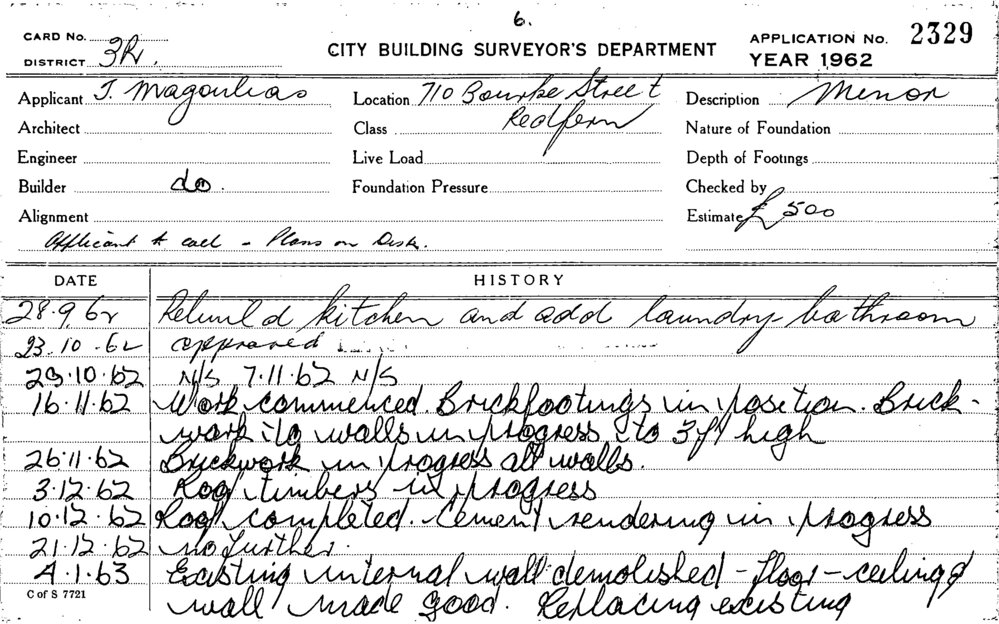 6.
CARD No.
CITY BUILDING SURVEYOR'S DEPARTMENT
APPLICATION No. 2329
DISTRICT 3R.
YEAR 1962
Applicant J. Magoulias
Location 710 Bourke Street
Redfern
Description Minor
Architect
Class
Nature of Foundation
Engineer
Live Load
Depth of Footings
Builder do.
Foundation Pressure
Checked by
Alignment
Estimate £ 500
Applicant to call - Plans on Desk.
DATE HISTORY
28.9.62 Rebuild kitchen and add laundry-bathroom
23.10.62 approved
29.10.62 N/S 7.11.62 N/S
16.11.62 Work commenced. Brickfootings in position. Brick-
work to walls in progress to 3ft high
26.11.62 Brickwork in progress all walls.
3.12.62 Roof timbers in progress
10.12.62 Roof completed. Cement rendering in progress
21.12.62 no further.
4.1.63 Existing internal wall demolished - floor - ceiling &
C of S 7721
wall made good. Replacing existing